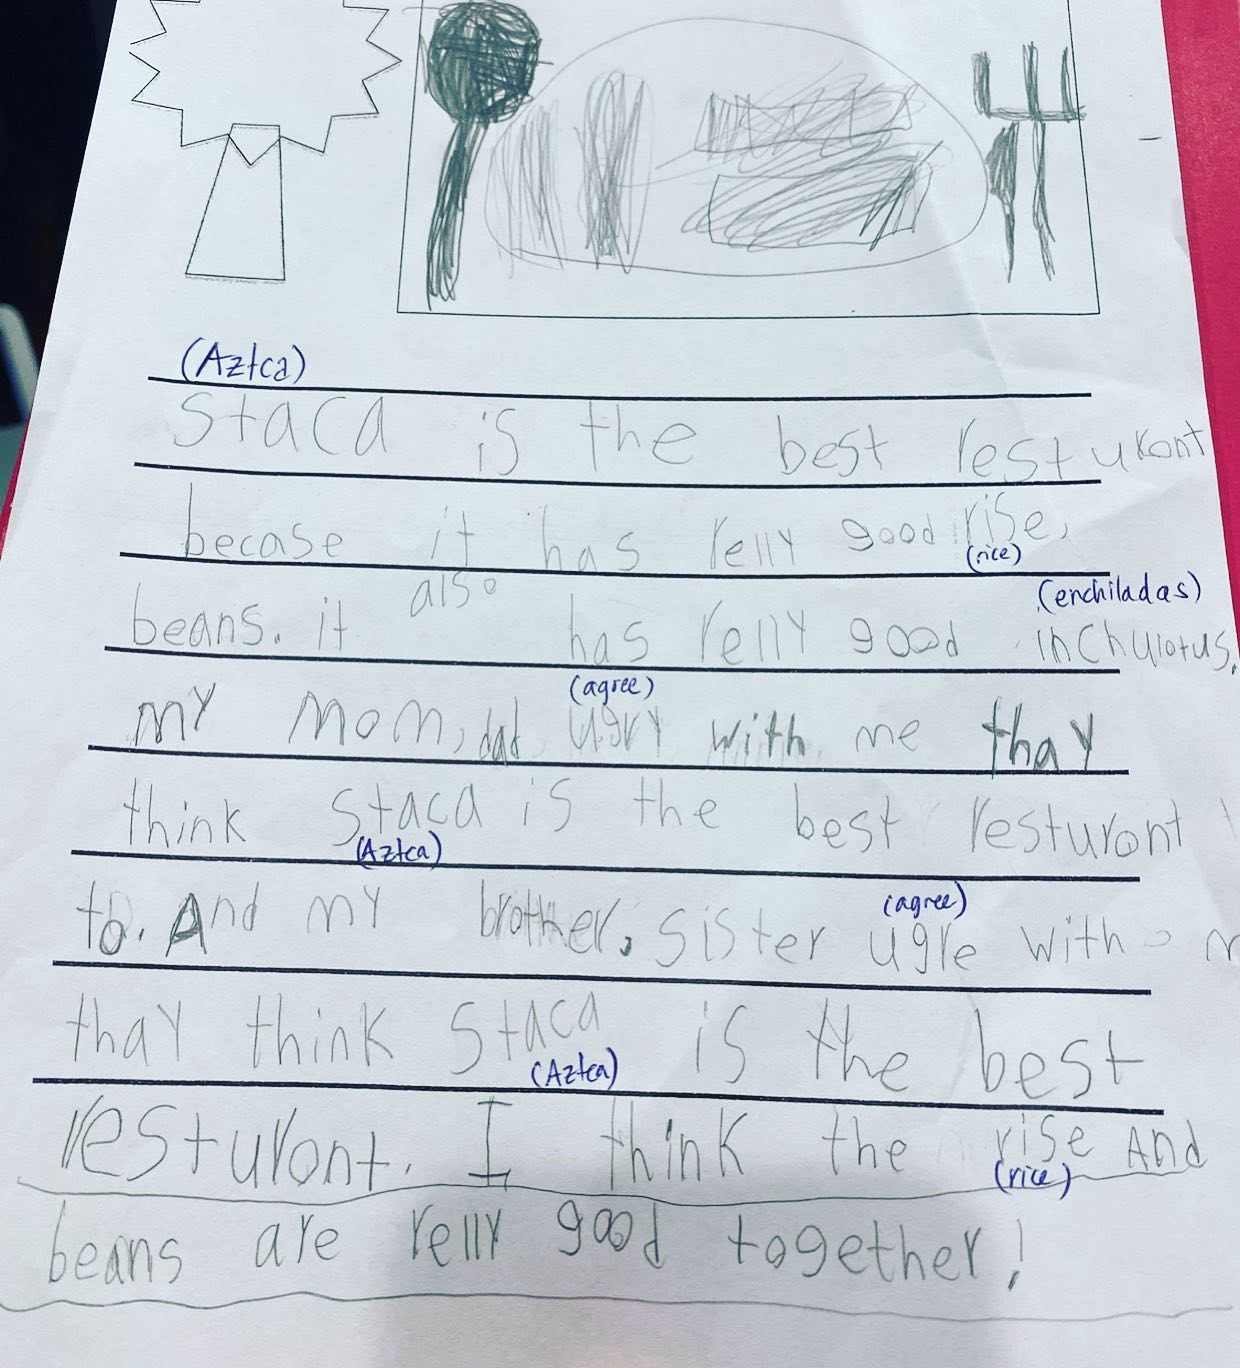 (Aztca)
Staca is the best resturont
becase it has relly good rise,
(rice)
also
(enchiladas)
beans. it has relly good inchulotus.
(agree)
my mom, dad ugry with me thay
think Staca is the best resturont
(Aztca)
(agree)
to. And my brother, sister ugre with
thay think Staca is the best
(Aztca)
resturont. I think the rise And
(rice)
beans are relly good together!